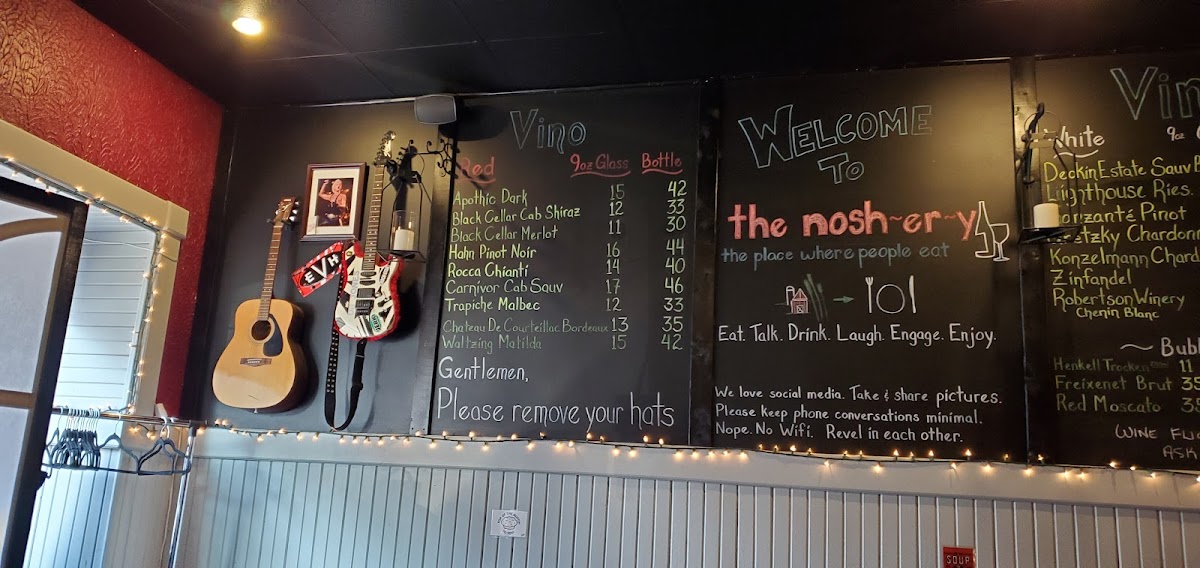 EVH
Vino
Red 9oz Glass Bottle
Apothic Dark 15 42
Black Cellar Cab Shiraz 12 33
Black Cellar Merlot 11 30
Hahn Pinot Noir 16 44
Rocca Chianti 14 40
Carnivor Cab Sauv 17 46
Trapiche Malbec 12 33
Chateau De Courteillac Bordeaux 13 35
Waltzing Matilda 15 42
Gentlemen,
Please remove your hats
WELCOME
TO
the nosh~er~y
the place where people eat
Eat. Talk. Drink. Laugh. Engage. Enjoy.
We love social media. Take & share pictures.
Please keep phone conversations minimal.
Nope. No Wifi. Revel in each other.
Vin
White 9oz
Deakin Estate Sauv B
Lighthouse Ries
Pinot
Chardonn
Konzelmann Chard
Zinfandel
Robertson Winery
Chenin Blanc
~ Bubb
Henkell Trocken 11
Freixenet Brut 35
Red Moscato 3
WINE FLIG
ASK
SOUP